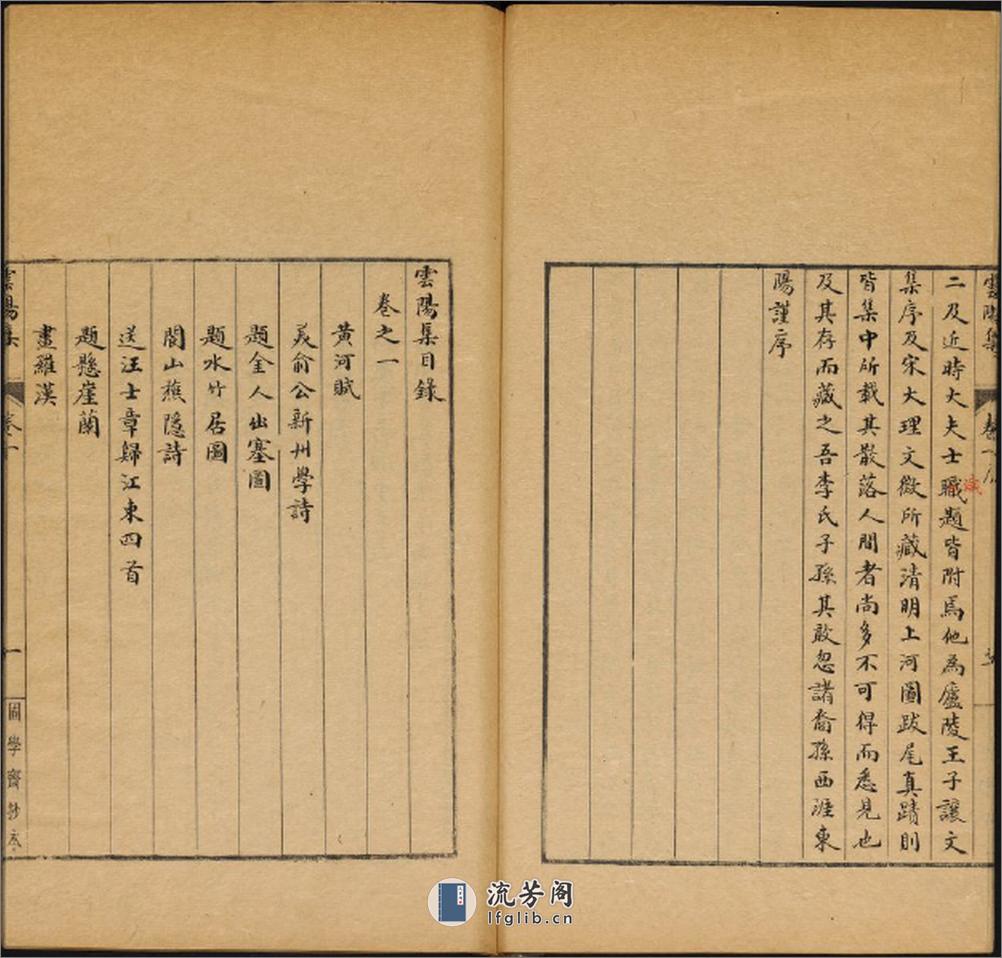 雲陽集
卷一序
二及近時大夫士職題皆附焉他為廬陵王子讓文
識
集序及宋大理文徵所藏清明上河圖跋尾真蹟則
皆集中所載其散落人間者尚多不可得而悉見也
及其存而藏之吾李氏子孫其敢忽諸裔孫西涯東
陽謹序
雲陽集目錄
卷之一
黃河賦
美俞公新州學詩
題金人出塞圖
題水竹居圖
閤山樵隱詩
送汪士章歸江東四首
題懸崖蘭
畫羅漢
雲陽集
卷一
一
困學齋抄本
流芳阁
lfglib.cn